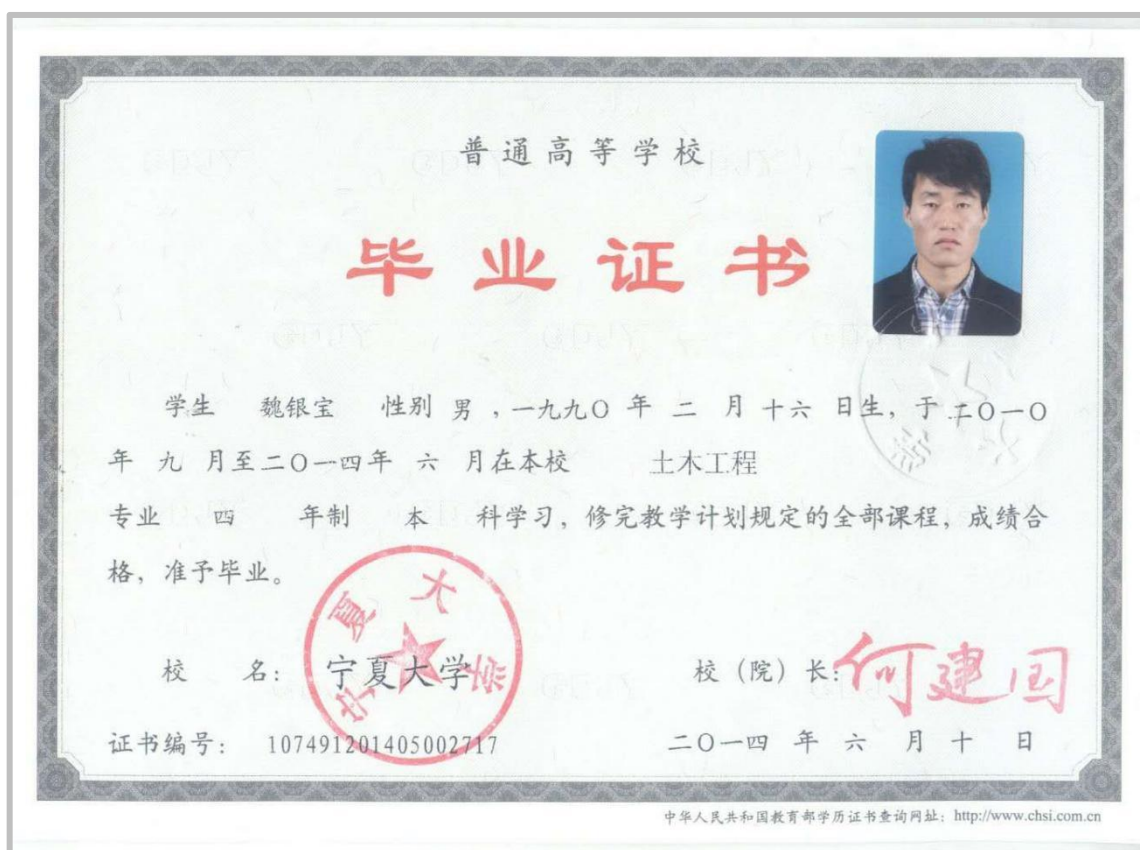 普通高等学校
毕业证书
学生 魏银宝 性别 男 ，一九九〇 年 二 月 十六 日生，于二〇一〇
年 九 月至二〇一四年 六 月在本校 土木工程
专业 四 年制 本 科学习，修完教学计划规定的全部课程，成绩合
格，准予毕业。
宁夏大学
校 名： 宁夏大学 校（院）长： 何建国
证书编号： 107491201405002717 二〇一四 年 六 月 十 日
中华人民共和国教育部学历证书查询网址：http://www.chsi.com.cn